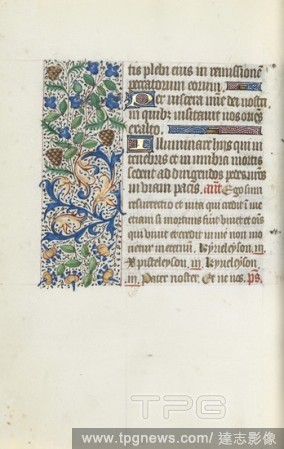 tis plebi eius in remissionē
peccatorum eorum.
Per viscera mīe dei nostri
in quib; visitauit nos oriēs
ex alto.
Illuminare hijs qui in
tenebris et in vmbra mortis
sedent ad dirigendos pedes nr̄os
in viam pacis. añt. Ego sum
resurrectio et vita qui credit in me
etiam si mortuus fuūt viuet et oīs
qui viuit et credit in me non mo
rietur in eternū. Kyrieleyson. iij.
Xpisteleyson. iij. Kyrieleyson.
iij. Pater noster. Et ne nos. p̄s.
TPG
www.tpgnews.com/達志影像